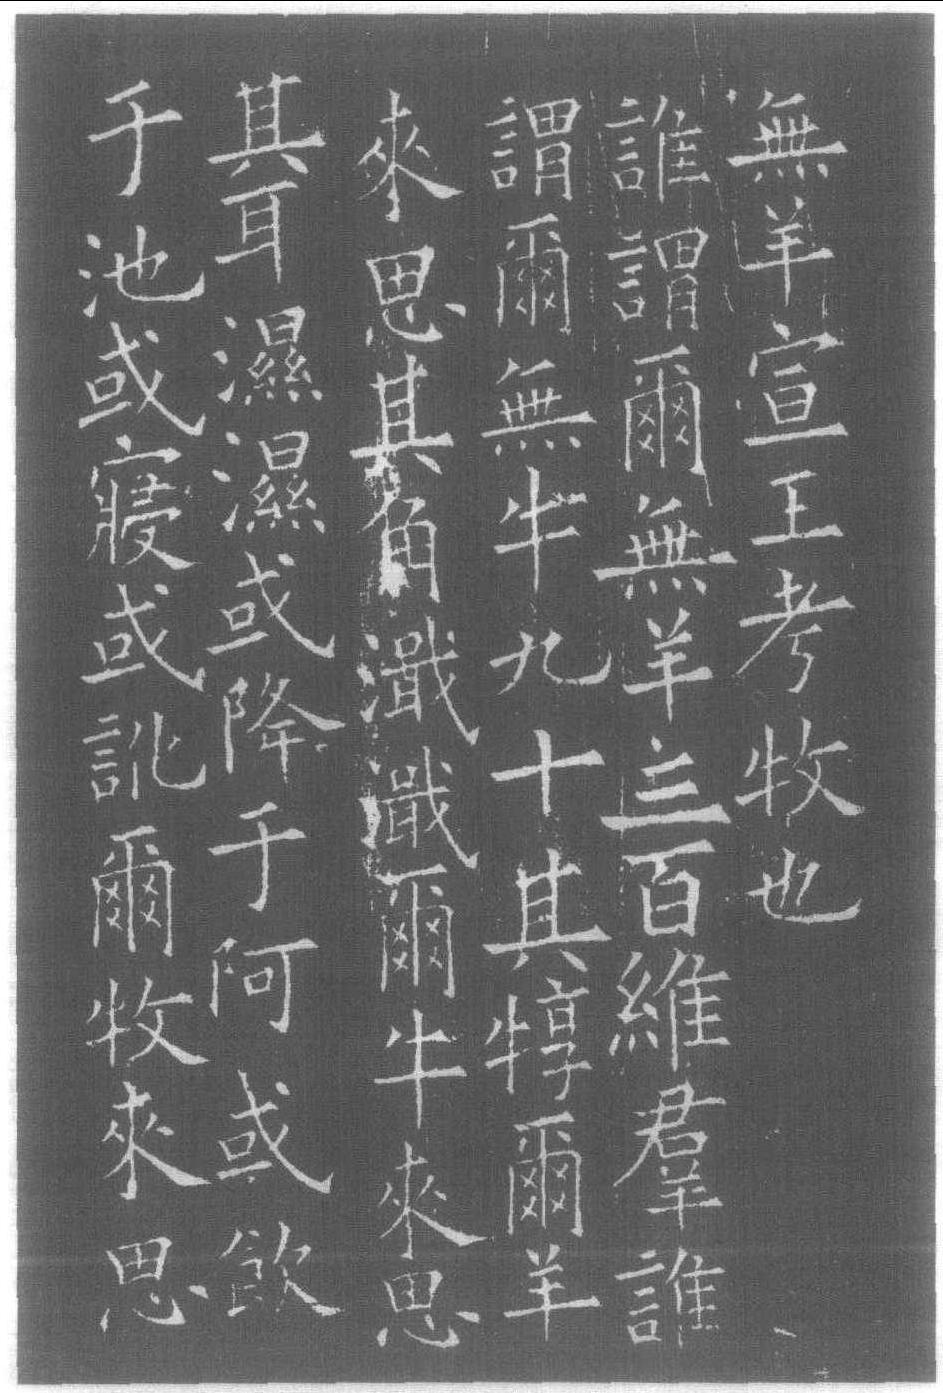 無羊宣王考牧也
誰謂爾無羊三百維羣誰
謂爾無牛九十其犉爾羊
來思其角濈濈爾牛來思
其耳濕濕或降于阿或飲
于池或寢或訛爾牧來思